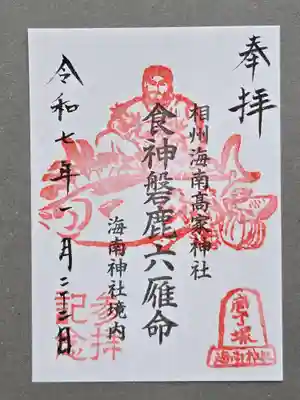 奉拝
相州海南高家神社
食神磐鹿六雁命
海南神社境内
令和七年一月二十二日
参拝
記念
庖丁塚
海南神社